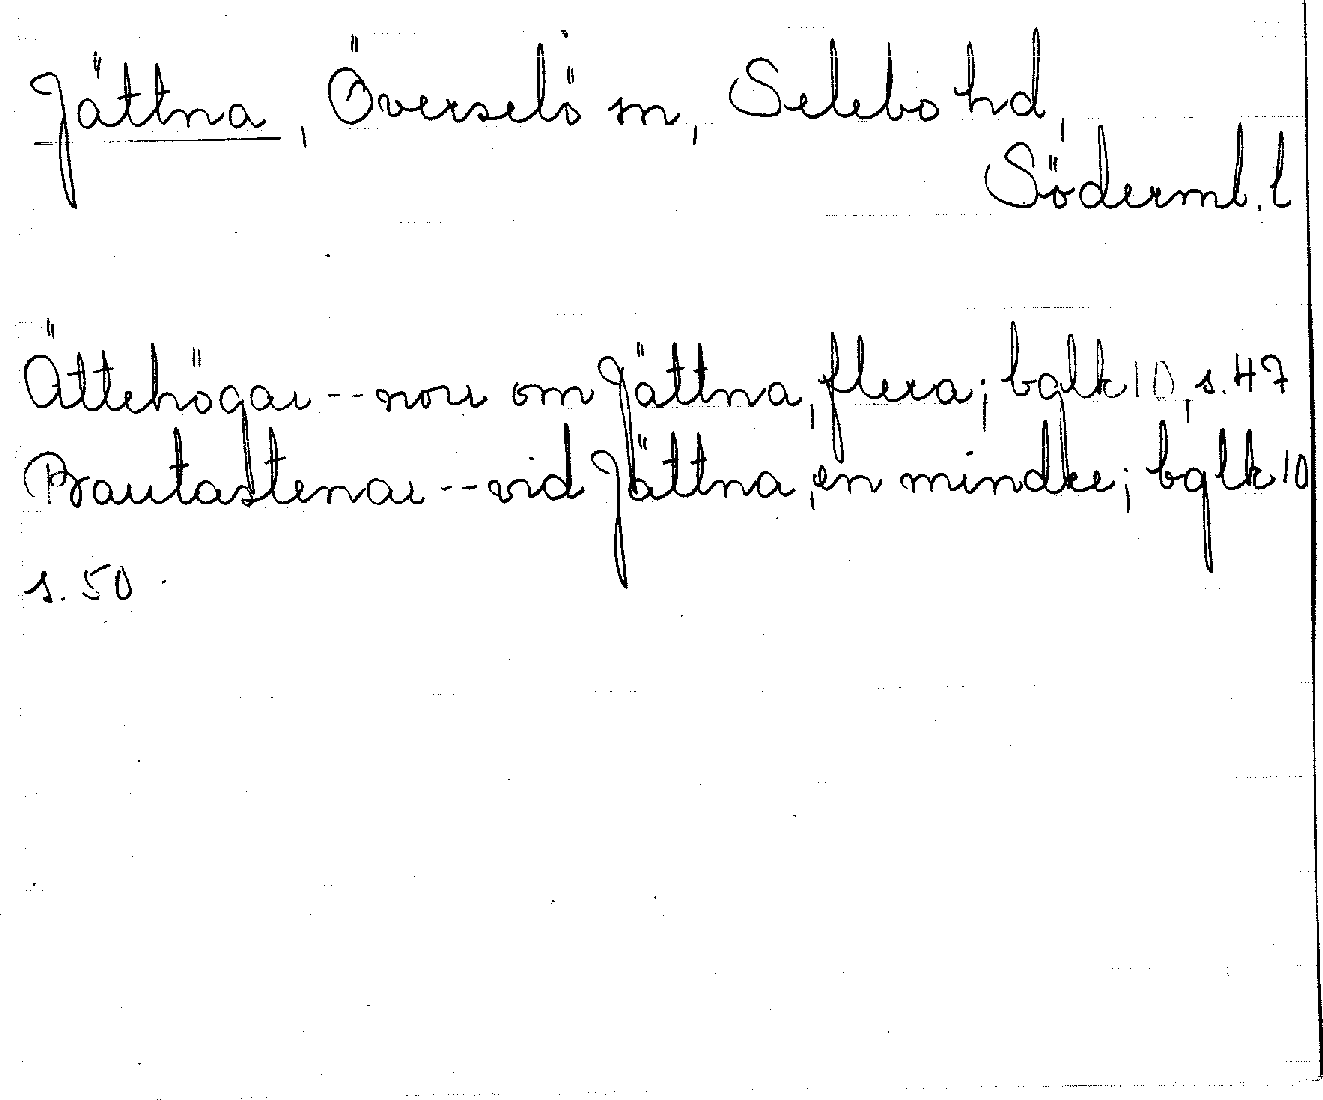 Jättna, Överselö sn, Selebo hd,
Söderml. l
Ättehögar -- norr om Jättna, flera; bglk 10, s. 47
Bautastenar -- vid Jättna, en mindre; bglk 10
s. 50.